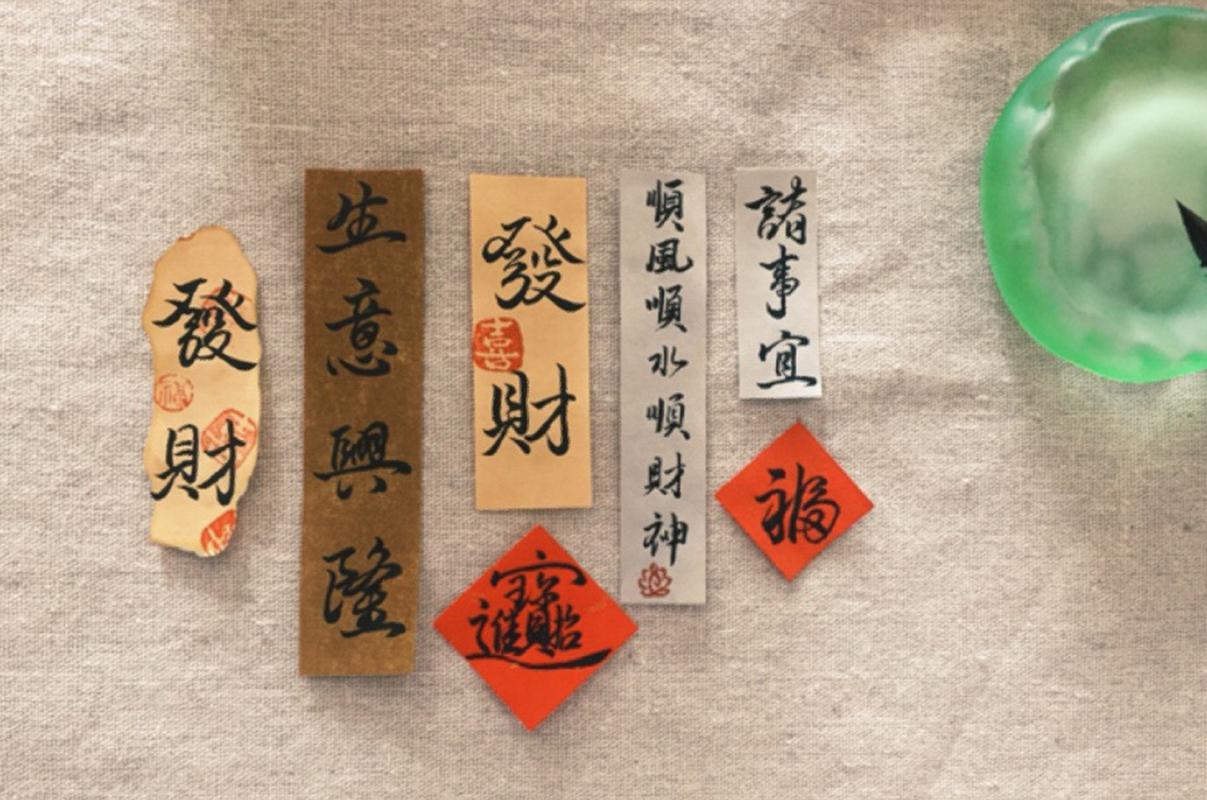 發財
生意興隆
發財
喜
招財進寶
順風順水順財神
諸事宜
福